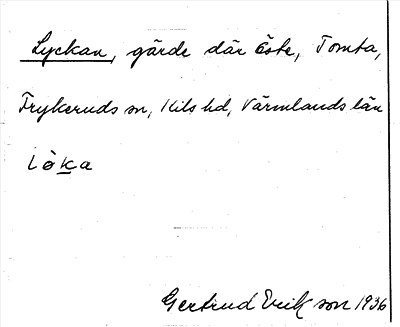 Lyckan, gärde där öste, Tomta,
Frykeruds sn, Kils hd, Värmlands län
lò̀ka
Gertrud Erikson 1936